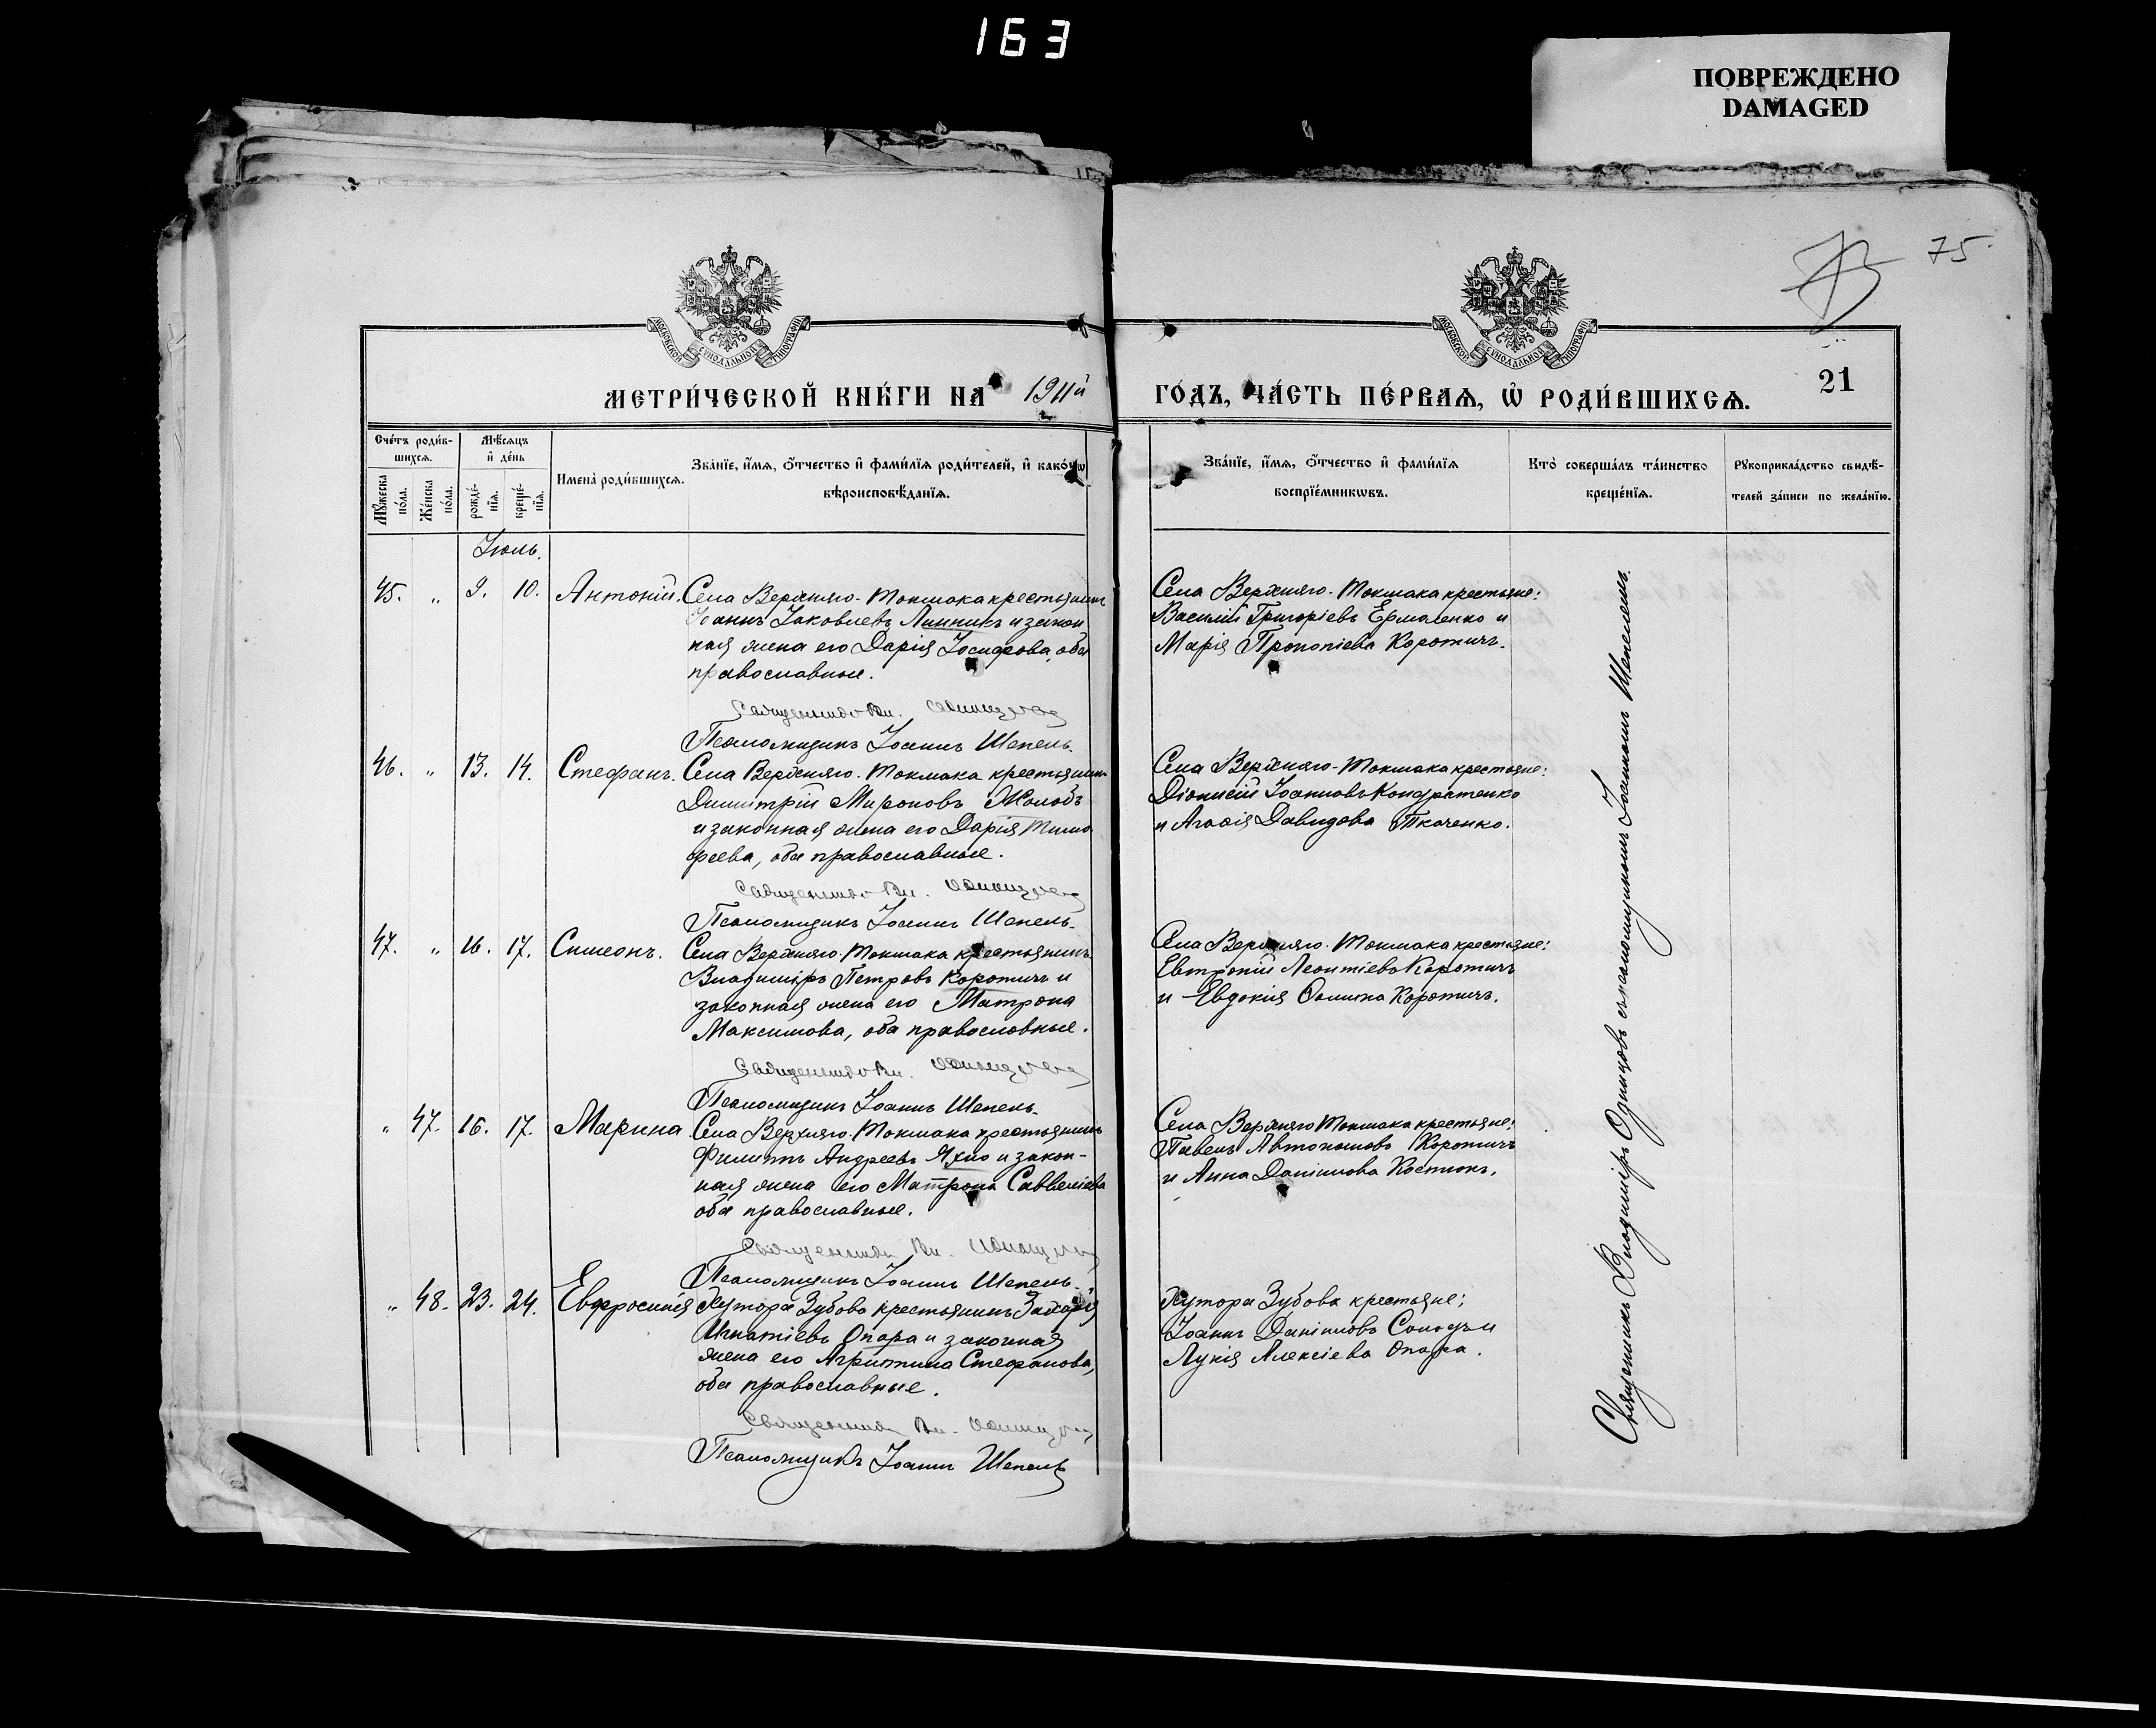 163
ПОВРЕЖДЕНО
DAMAGED
75
МОСКОВСКОЙ СѴНОДАЛЬНОЙ ТИПОГРАФІИ
МОСКОВСКОЙ СѴНОДАЛЬНОЙ ТИПОГРАФІИ
МЕТРИ́ЧЕСКОЙ КНИ́ГИ НА 1911й ГО́ДЪ, ЧА́СТЬ ПЕ́РВАѦ, Ѡ РОДИ́ВШИХСѦ.
21
Сче́тъ роди́вшихсѧ.
Мꙋ́жеска по́ла.
Же́нска по́ла.
Мѣ́сѧцъ и҆ де́нь
рожде́нїѧ.
креще́нїѧ.
И҆мена̀ роди́вшихсѧ.
Зва́нїе, и҆́мѧ, ѻ҆́тчество и҆ фами́лїѧ роди́телей, и҆ како́гѡ
вѣроисповѣ́данїѧ.
Зва́нїе, и҆́мѧ, ѻ҆́тчество и҆ фами́лїѧ
воспрїе́мникѡвъ.
Кто̀ соверша́лъ та́инство
креще́нїѧ.
Рꙋкоприкла́дство свидѣ́-
телей за́писи по жела́нїю.
Іюль.
45. „ 9. 10. Антоній. Села Верхняго-Токмака крестьянинъ
Іоаннъ Іаковлевъ Линникъ и закон
ная жена его Дарія Іосифова, оба
православные.
Священникъ Вл. Одинцовъ
Псаломщикъ Іоаннъ Шепель.
Села Верхняго-Токмака крестьяне:
Василій Григоріевъ Ермоленко и
Марія Прокопіева Коротичъ.
46. „ 13. 14. Стефанъ. Села Верхняго-Токмака крестьянинъ
Димитрій Мироновъ Жолобъ
и законная жена его Дарія Тимо
феева, оба православные.
Священникъ Вл. Одинцовъ
Псаломщикъ Іоаннъ Шепель.
Села Верхняго-Токмака крестьяне:
Діонисій Іоанновъ Кондратенко
и Агафія Давидова Ткаченко.
47. „ 16. 17. Симеонъ. Села Верхняго-Токмака крестьянинъ
Владиміръ Петровъ Коротичъ и
законная жена его Матрона
Максимова, оба православные.
Священникъ Вл. Одинцовъ
Псаломщикъ Іоаннъ Шепель.
Села Верхняго-Токмака крестьяне:
Евтропій Леонтіевъ Коротичъ
и Евдокія Фомина Коротичъ.
„ 47. 16. 17. Марина. Села Верхняго-Токмака крестьянинъ
Филиппъ Андреевъ Яхно и закон-
ная жена его Матрона Саввеліева
оба православные.
Священникъ Вл. Одинцовъ
Псаломщикъ Іоаннъ Шепель.
Села Верхняго Токмака крестьяне:
Павелъ Автономовъ Коротичъ
и Анна Даніилова Костюкъ.
„ 48. 23. 24. Евфросинія Хутора Зубова крестьянинъ Захарія
Игнатіевъ Опара и законная
жена его Агриппина Стефанова,
оба православные.
Священникъ Вл. Одинцовъ
Псаломщикъ Іоаннъ Шепель
Хутора Зубова крестьяне:
Іоаннъ Данііловъ Солодъ и
Лукія Алексіева Опара.
Священникъ Владиміръ Одинцовъ съ псаломщикомъ Іоанномъ Шепелемъ.